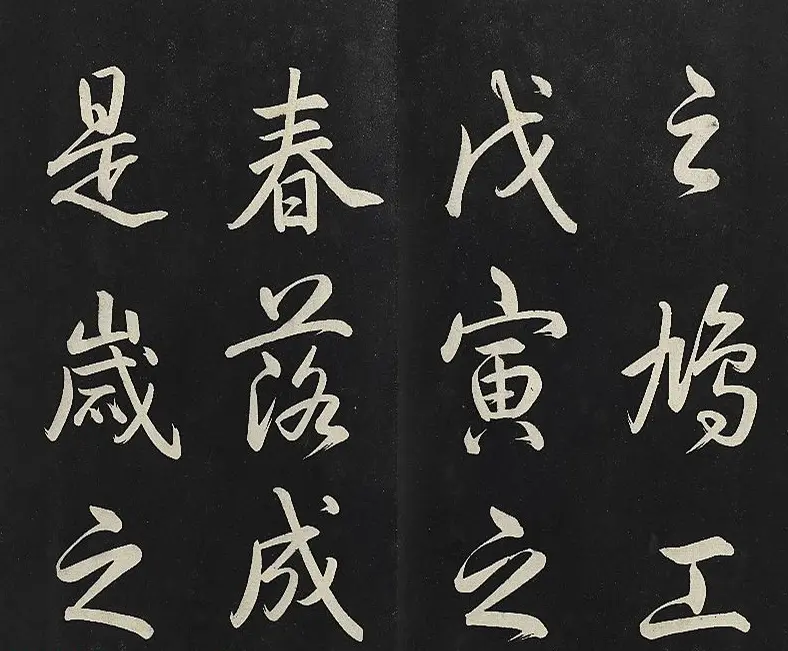 之鳩工
戊寅之
春落成
是歲之